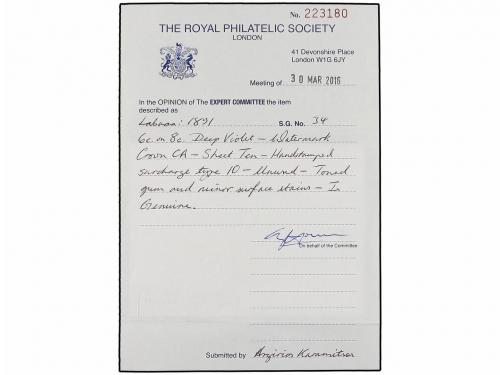 No. 223180
THE ROYAL PHILATELIC SOCIETY
LONDON
41 Devonshire Place
London W1G 6JY
Meeting of 30 MAR 2016
In the OPINION of The EXPERT COMMITTEE the item
described as
Labuan: 1891 S.G. No. 34
6c. on 8c. Deep Violet – Watermark
Crown CA – Sheet Ten – Handstamped
surcharge type 10 – Unused – Toned
gum and minor surface stains – Is
Genuine.
On behalf of the Committee
Submitted by Argirios Karamitsos